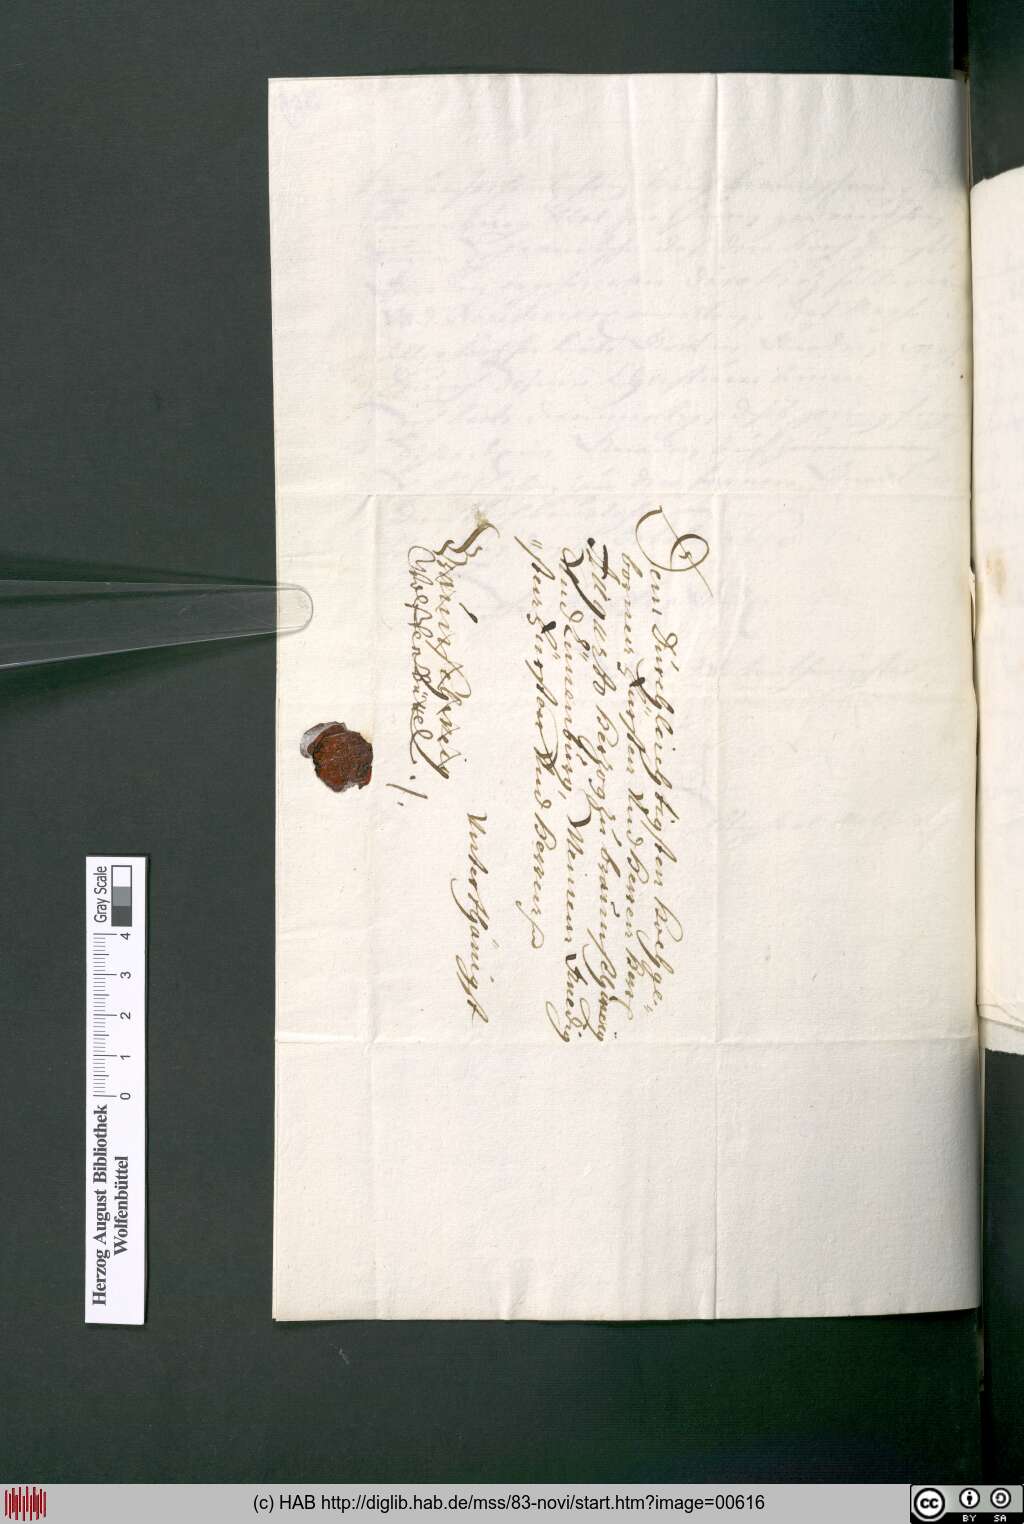 Dem Durchleichtigsten hochge„
bornen Fürsten und Herren Herr
Augusto Herzog zu braunschweig
und Lunenburg, Meinem Gnedig
„sten Fürsten und Herren
Unterthänigst
Braunschweig
Wolffenbüttel ./.
Herzog August Bibliothek
Wolfenbüttel
0 1 2 3 4
Gray Scale
(c) HAB http://diglib.hab.de/mss/83-novi/start.htm?image=00616
cc
BY SA